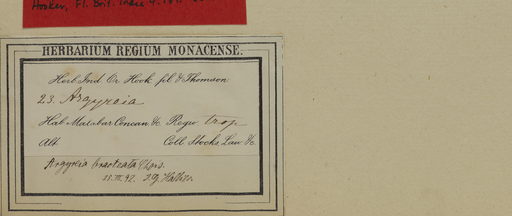 Hooker, Fl. Brit. India 4: 187.
HERBARIUM REGIUM MONACENSE.
Herb. Ind. Or. Hook. fil. & Thomson
23. Argyreia
Hab. Malabar Concan &c. Regio trop.
Alt. Coll. Stocks, Law &c.
Argyreia bracteata Chois.